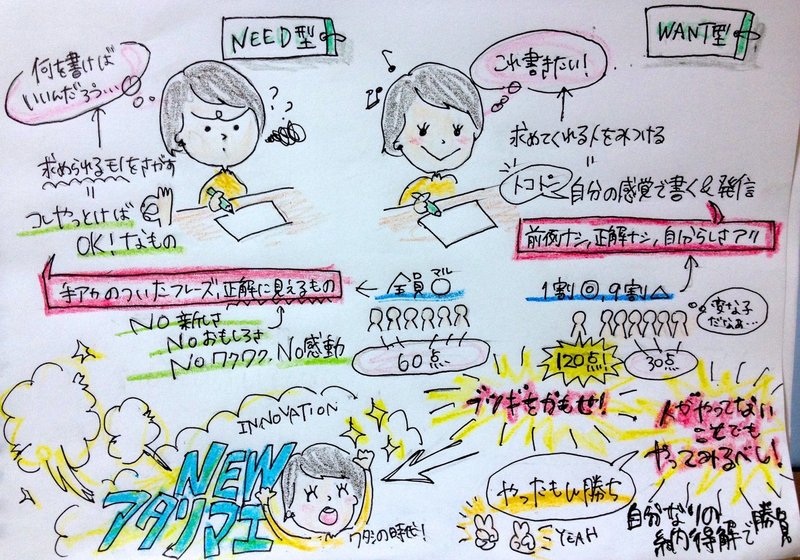 NEED型
WANT型
何を書けば
いいんだろう…
??
これ書きたい!
求められるモノをさがす
=
コレやっとけば
OK!なもの
求めてくれる人をみつける
=
トコトン
自分の感覚で書く&発信
前例ナシ,正解ナシ,自分らしさアリ
手アカのついたフレーズ,正解に見えるもの
NO 新しさ
NO おもしろさ
NO ワクワク, NO 感動
全員○
マル
60点
1割◎,9割△
変な子
だなぁ…
120点!
30点
ブツギをかもせ!
人がやってない
ことでも
やってみるべし!
INNOVATION
NEW
アタリマエ
ワタシの時代!
やったもん勝ち
YEAH
自分なりの
納得解で
勝負